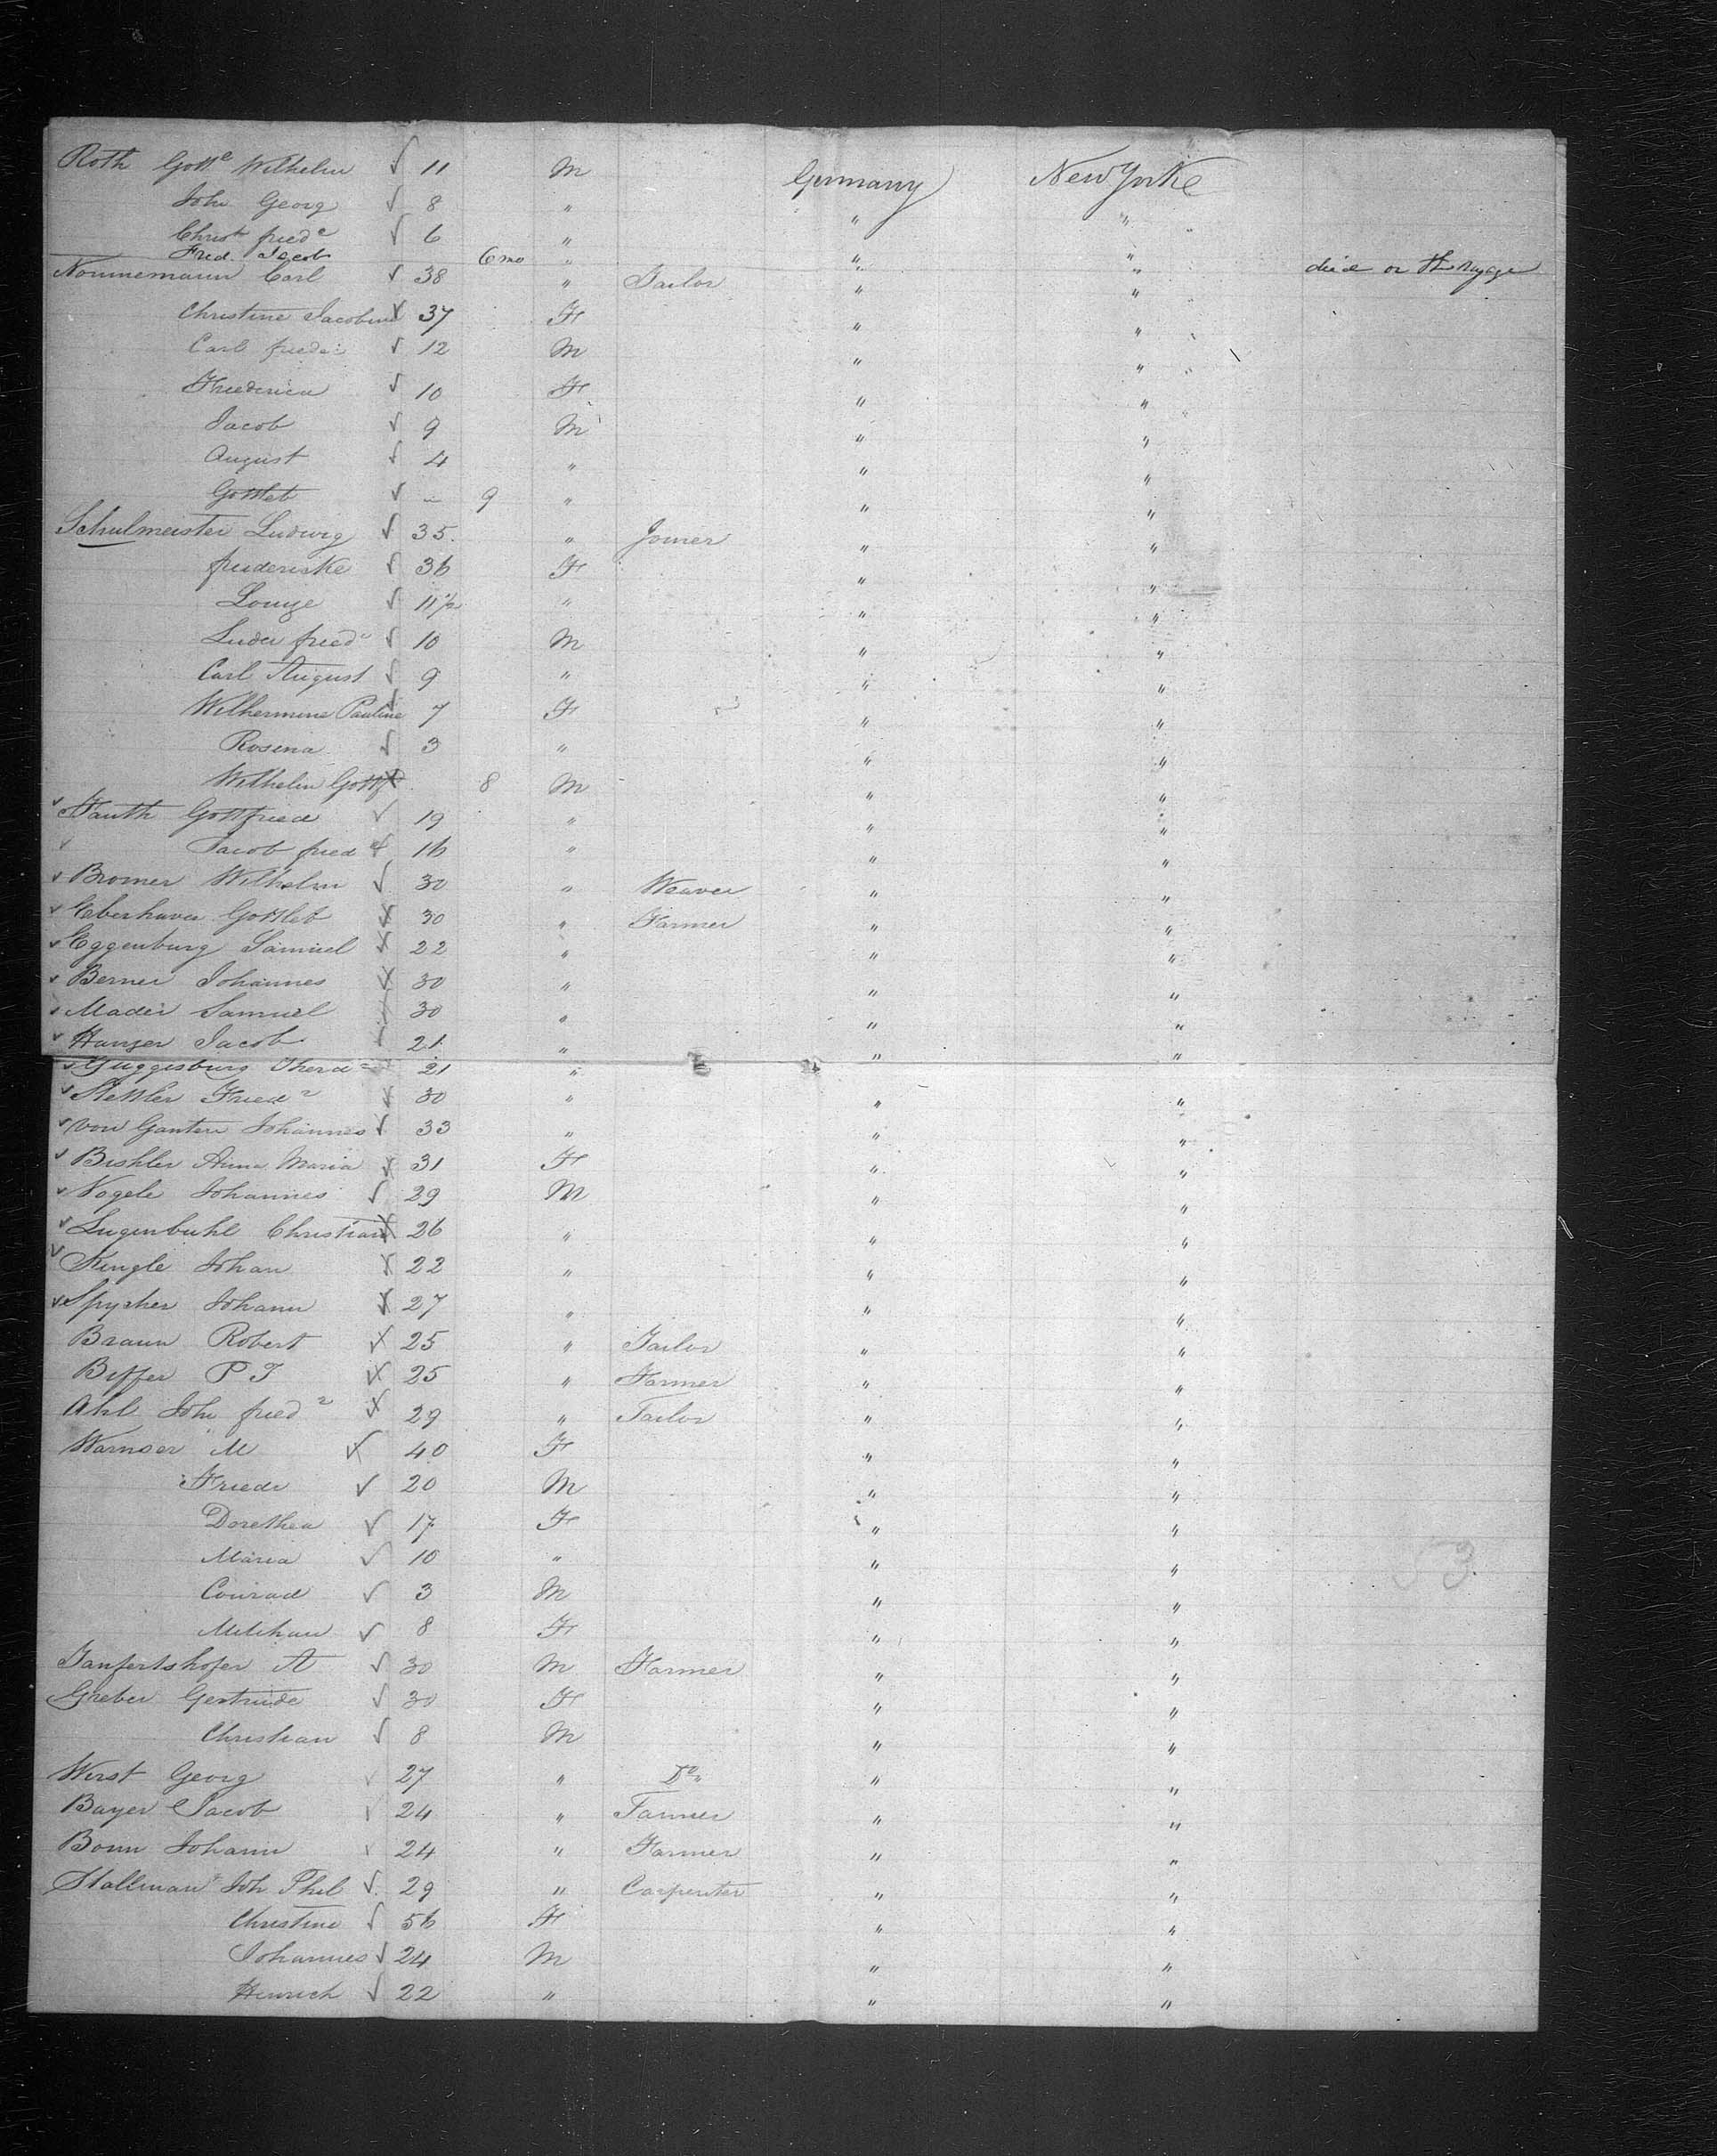 Roth Gott^e Wilhelm √ 11 M Germany New Yorke
Joh Georg √ 8 " " "
Christ fried^e √ 6 " " "
Fred. Jacob 6 mo " " " died on the voyage
Nonnemann Carl √ 38 " Tailor " "
Christine Jacobine X 37 F " "
Carl frieder √ 12 M " "
Friederica √ 10 F " "
Jacob √ 9 M " "
August √ 4 " " "
Gottleb √ - 9 " " "
Schulmeister Ludwig √ 35. " Joiner " "
friederiske √ 36 F " "
Louye √ 11½ " " "
Luder fried √ 10 M " "
Carl August √ 9 " " "
Wilhermine Pauline √ 7 F " "
Rosena √ 3 " " "
Wilhelm Gottf 8 M " "
√ Fauth Gottfried √ 19 " " "
√ Jacob fried √ 16 " " "
√ Bromer Wilhelm √ 30 " Weaver " "
√ Eberhaver Gottleb X 30 " Farmer " "
√ Eggenburg Samuel X 22 " " "
√ Berner Johannes X 30 " " "
√ Mader Samuel 30 " " "
√ Hanzer Jacob √ 21 " " "
√ Guggisburg 21 "
√ Stettler Fried √ 30 " " "
√ von Ganten Johannes √ 33 " " "
√ Bishler Anna Maria √ 31 F " "
√ Nogele Johannes √ 29 M " "
√ Lugenbuhl Christian X 26 " " "
√ Kingle Johan X 22 " " "
√ Spycher Johann X 27 " " "
Braun Robert X 25 " Tailor " "
Biffer P J X 25 " Farmer " "
Ahl Joh fried X 29 " Tailor " "
Warnser M X 40 F " "
Friedr √ 20 M " "
Dorethea √ 17 F " "
Maria √ 10 " " "
Conrad √ 3 M " "
Milchau √ 8 F " "
Janfertshofer A √ 30 M Farmer " "
Greber Gertrude √ 30 F " "
Christian √ 8 M " "
Wirst Georg √ 27 " D^o " "
Bayer Jacob √ 24 " Farmer " "
Bonn Johann √ 24 " Farmer " "
Stallman Joh Phil √ 29 " Carpenter " "
Christine √ 56 F " "
Johannes √ 24 M " "
Heinrich √ 22 " " "
53